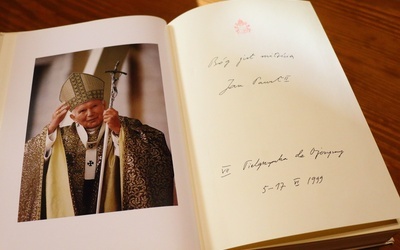 Bóg jest miłością
Jan Paweł II
VII Pielgrzymka do Ojczyzny
5-17 VI 1999